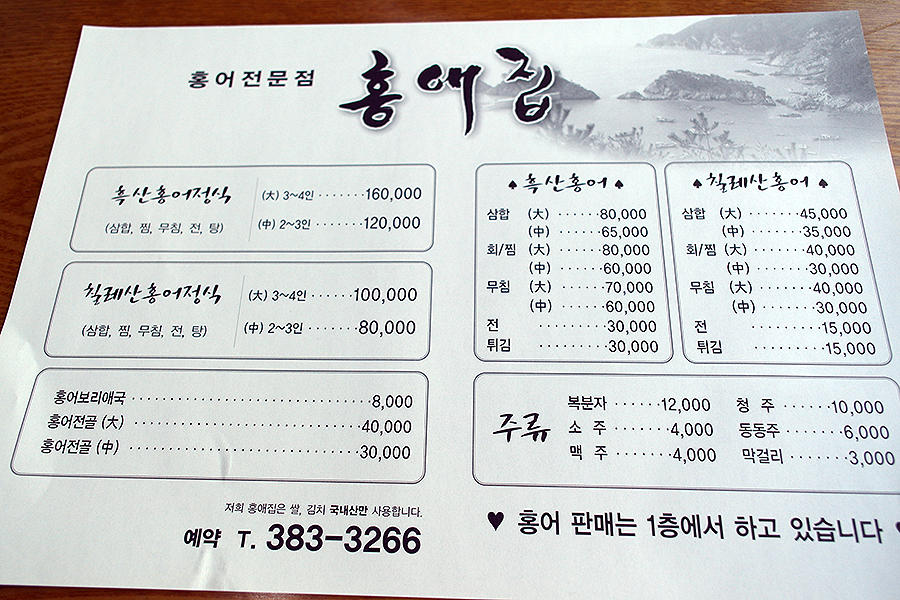 홍어전문점 홍애집
흑산홍어정식 (大) 3~4인 ······· 160,000
(삼합, 찜, 무침, 전, 탕) (中) 2~3인 ······· 120,000
칠레산홍어정식 (大) 3~4인 ······ 100,000
(삼합, 찜, 무침, 전, 탕) (中) 2~3인 ········ 80,000
홍어보리애국 ································ 8,000
홍어전골 (大) ······························ 40,000
홍어전골 (中) ······························ 30,000
저희 홍애집은 쌀, 김치 국내산만 사용합니다.
예약 T. 383-3266
♠ 흑산홍어 ♠
삼합 (大) ······ 80,000
(中) ······ 65,000
회/찜 (大) ······ 80,000
(中) ······ 60,000
무침 (大) ······ 70,000
(中) ······ 60,000
전 ·········· 30,000
튀김 ·········· 30,000
♠ 칠레산홍어 ♠
삼합 (大) ······· 45,000
(中) ······· 35,000
회/찜 (大) ······· 40,000
(中) ······· 30,000
무침 (大) ······· 40,000
(中) ······· 30,000
전 ·········· 15,000
튀김 ·········· 15,000
주류
복분자 ······ 12,000 청 주 ······ 10,000
소 주 ······· 4,000 동동주 ······· 6,000
맥 주 ······· 4,000 막걸리 ······· 3,000
♥ 홍어 판매는 1층에서 하고 있습니다